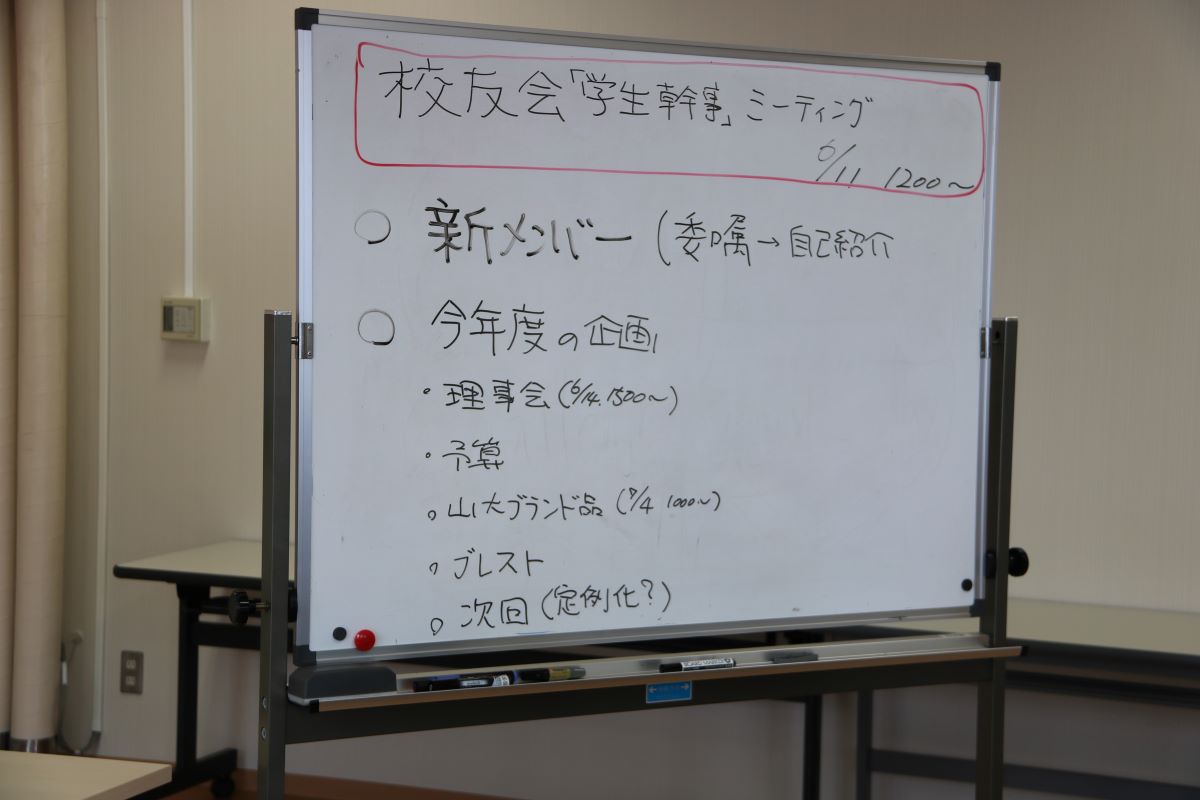 校友会「学生幹事」ミーティング
6/11 1200〜
○ 新メンバー (委嘱→自己紹介
○ 今年度の企画
・理事会(6/14. 1500〜)
・予算
。山大ブランド品(7/4 1000〜)
。ブレスト
。次回(定例化?)